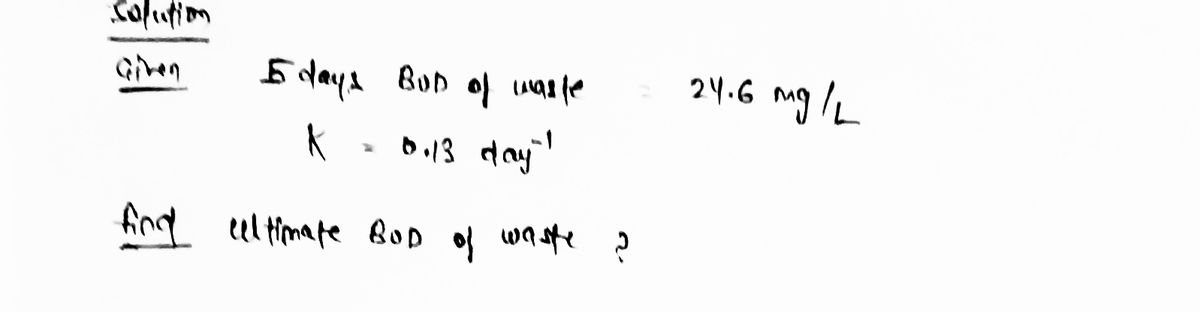 Solution
Given 5 days BOD of waste = 24.6 mg/L
K = 0.13 day⁻¹
find ultimate BOD of waste ?